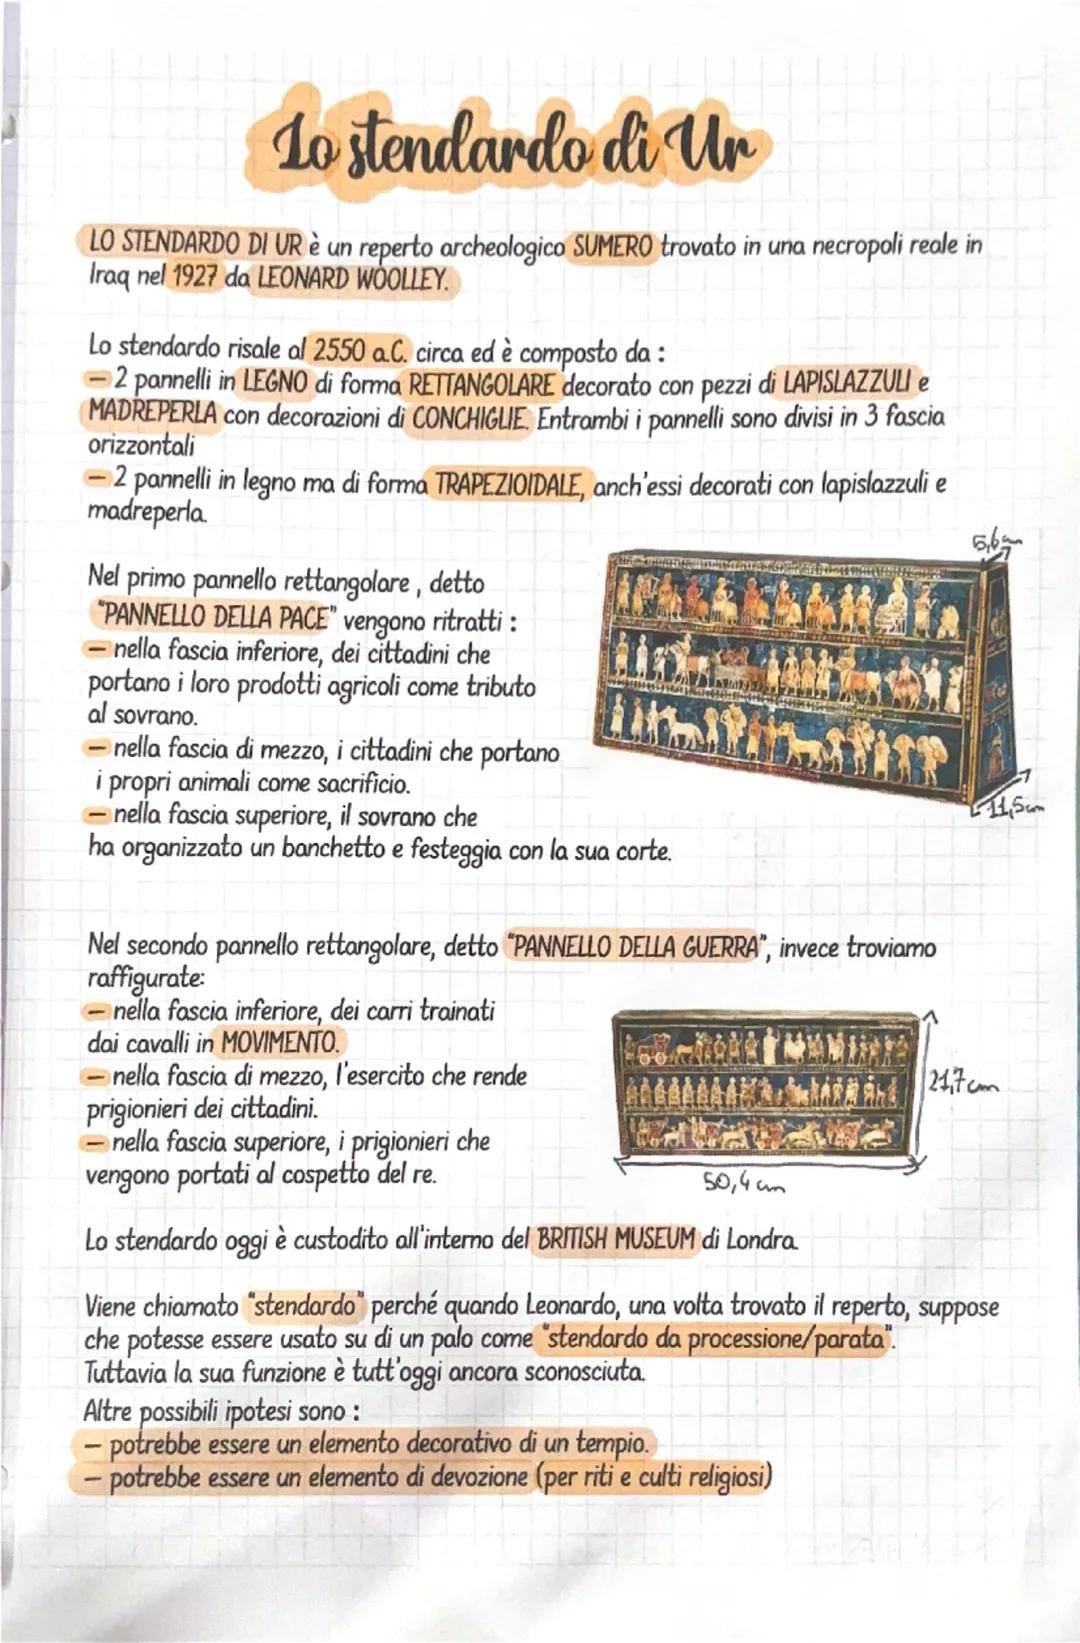 Lo stendardo di Ur
LO STENDARDO DI UR è un reperto archeologico SUMERO trovato in una necropoli reale in
Iraq nel 1927 da LEONARD WOOLLEY.
Lo stendardo risale al 2550 a.C. circa ed è composto da :
– 2 pannelli in LEGNO di forma RETTANGOLARE decorato con pezzi di LAPISLAZZULI e
MADREPERLA con decorazioni di CONCHIGLIE. Entrambi i pannelli sono divisi in 3 fascia
orizzontali
– 2 pannelli in legno ma di forma TRAPEZIOIDALE, anch'essi decorati con lapislazzuli e
madreperla.
5,6 cm
Nel primo pannello rettangolare , detto
"PANNELLO DELLA PACE" vengono ritratti :
– nella fascia inferiore, dei cittadini che
portano i loro prodotti agricoli come tributo
al sovrano.
– nella fascia di mezzo, i cittadini che portano
i propri animali come sacrificio.
– nella fascia superiore, il sovrano che
11,5 cm
ha organizzato un banchetto e festeggia con la sua corte.
Nel secondo pannello rettangolare, detto "PANNELLO DELLA GUERRA", invece troviamo
raffigurate:
– nella fascia inferiore, dei carri trainati
dai cavalli in MOVIMENTO.
– nella fascia di mezzo, l'esercito che rende
21,7 cm
prigionieri dei cittadini.
– nella fascia superiore, i prigionieri che
vengono portati al cospetto del re.
50,4 cm
Lo stendardo oggi è custodito all'interno del BRITISH MUSEUM di Londra.
Viene chiamato "stendardo" perché quando Leonardo, una volta trovato il reperto, suppose
che potesse essere usato su di un palo come "stendardo da processione/parata".
Tuttavia la sua funzione è tutt'oggi ancora sconosciuta.
Altre possibili ipotesi sono :
– potrebbe essere un elemento decorativo di un tempio.
– potrebbe essere un elemento di devozione (per riti e culti religiosi)